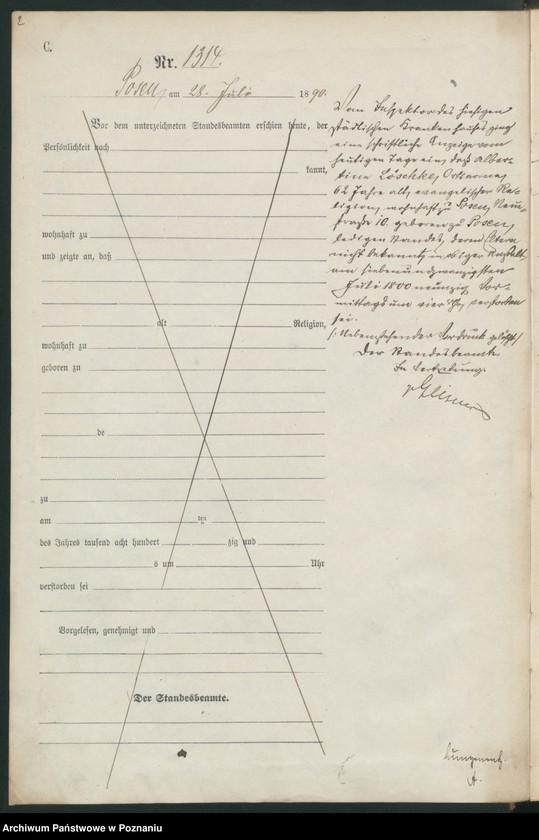 2
C.
Nr. 1314.
Posen, am 28. Juli 1890.
Vor dem unterzeichneten Standesbeamten erschien heute, der
Persönlichkeit nach
kannt,
wohnhaft zu
und zeigte an, daß
alt Religion,
wohnhaft zu
geboren zu
de
zu
am den
des Jahres tausend acht hundert zig und
s um Uhr
verstorben sei
Vorgelesen, genehmigt und
Der Standesbeamte.
Vom Inspektor des hiesigen
städtischen Krankenhauses ging
eine schriftliche Anzeige vom
heutigen Tage ein, daß Alber-
tine Löschke, Ortsarme,
62 Jahre alt, evangelischer Re-
ligion, wohnhaft zu Posen, Neu-
straße 10. geboren zu Posen,
ledigen Standes, deren Eltern
nicht bekannt, in obiger Anstalt
am siebenundzwanzigsten
Juli 1800 neunzig Vor-
mittags um vier Uhr verstorben
sei.
Nebenstehender Vordruck gelöscht
Der Standesbeamte
In Vertretung.
Archiwum Państwowe w Poznaniu